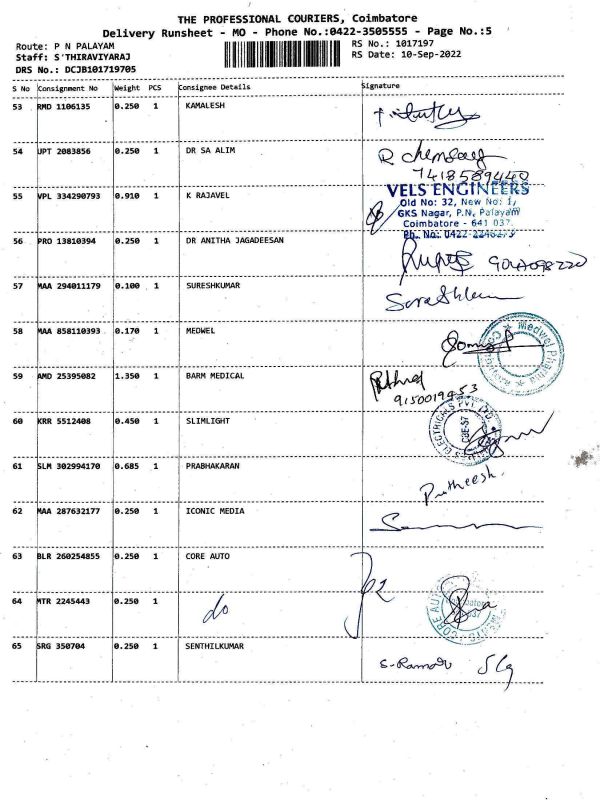 THE PROFESSIONAL COURIERS, Coimbatore
Delivery Runsheet - MO - Phone No.:0422-3505555 - Page No.:5
Route: P N PALAYAM
Staff: S'THIRAVIYARAJ
DRS No.: DCJB101719705
RS No.: 1017197
RS Date: 10-Sep-2022
S No Consignment No Weight PCS Consignee Details Signature
53 RMD 1106135 0.250 1 KAMALESH
54 UPT 2083856 0.250 1 DR SA ALIM
7418589440
55 VPL 334290793 0.910 1 K RAJAVEL
VELS ENGINEERS
Old No: 32, New No: 1,
GKS Nagar, P.N. Palayam
Coimbatore - 641 037.
Ph. No: 0422-2246273
56 PRO 13810394 0.250 1 DR ANITHA JAGADEESAN
57 MAA 294011179 0.100 1 SURESHKUMAR
58 MAA 858110393 0.170 1 MEDWEL
Medwel Pharma
59 AMD 25395082 1.350 1 BARM MEDICAL
60 KRR 5512408 0.450 1 SLIMLIGHT
ELECTRICALS PVT LTD
CBE-37
61 SLM 302994170 0.685 1 PRABHAKARAN
62 MAA 287632177 0.250 1 ICONIC MEDIA
63 BLR 260254855 0.250 1 CORE AUTO
64 MTR 2245443 0.250 1 do
CORE AUTO
65 SRG 350704 0.250 1 SENTHILKUMAR